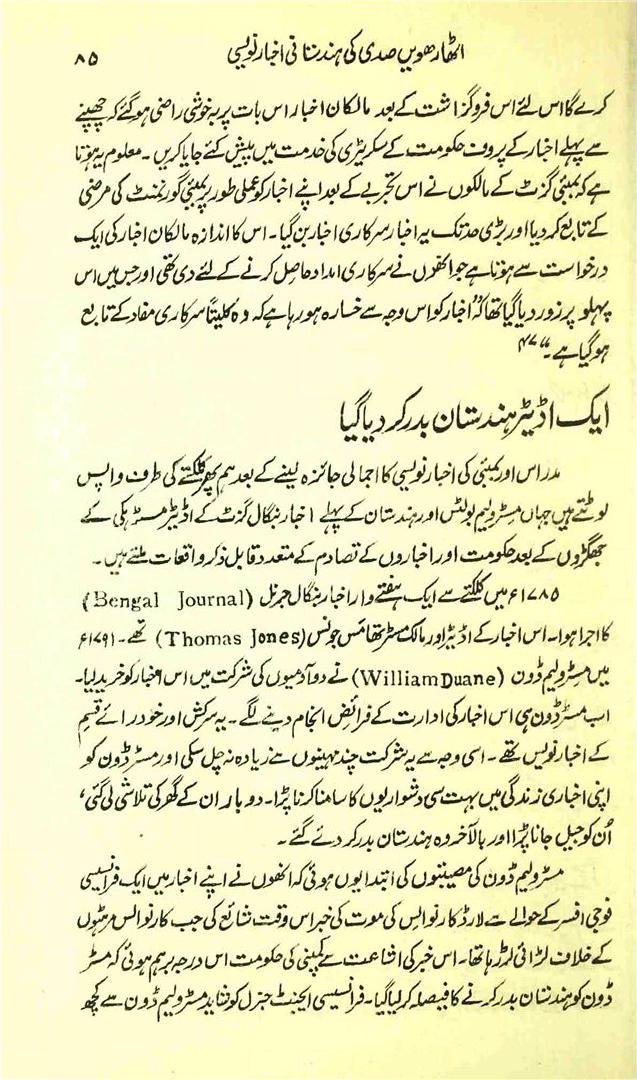 اٹھارھویں صدی کی ہندستانی اخبار نویسی ۸۵
کرے گا اس لئے اس فروگزاشت کے بعد مالکان اخبار اس بات پر بہ خوشی راضی ہو گئے کہ چھپنے
سے پہلے اخبار کے پروف حکومت کے سکریٹری کی خدمت میں پیش کئے جایا کریں۔ معلوم یہ ہوتا
ہے کہ بمبئی گزٹ کے مالکوں نے اس تجربے کے بعد اپنے اخبار کو عملی طور پر بمبئی گورنمنٹ کی مرضی
کے تابع کر دیا اور بڑی حد تک یہ اخبار سرکاری اخبار بن گیا۔ اس کا اندازہ مالکان اخبار کی ایک
درخواست سے ہوتا ہے جو انھوں نے سرکاری امداد حاصل کرنے کے لئے دی تھی اور جس میں اس
پہلو پر زور دیا گیا تھا کہ "اخبار کو اس وجہ سے خسارہ ہو رہا ہے کہ وہ کلیتاً سرکاری مفاد کے تابع
ہو گیا ہے۔"
ایک اڈیٹر ہندستان بدر کر دیا گیا
مدراس اور بمبئی کی اخبار نویسی کا اجمالی جائزہ لینے کے بعد ہم پھر کلکتے کی طرف واپس
لوٹتے ہیں جہاں مسٹر ولیم بولٹس اور ہندستان کے پہلے اخبار بنگال گزٹ کے اڈیٹر مسٹر ہکی کے
جھگڑوں کے بعد حکومت اور اخباروں کے تصادم کے متعدد قابل ذکر واقعات ملتے ہیں۔
۱۷۸۵ء میں کلکتے سے ایک ہفتے وار اخبار بنگال جرنل (Bengal Journal)
کا اجرا ہوا۔ اس اخبار کے اڈیٹر اور مالک مسٹر تھامس جونس (Thomas Jones) تھے۔ ۱۷۹۱ء
میں مسٹر ولیم ڈون (William Duane) نے دو آدمیوں کی شرکت میں اس اخبار کو خرید لیا۔
اب مسٹر ڈون ہی اس اخبار کی ادارت کے فرائض انجام دینے لگے۔ یہ سرکش اور خود رائے قسم
کے اخبار نویس تھے۔ اسی وجہ سے یہ شرکت چند مہینوں سے زیادہ نہ چل سکی اور مسٹر ڈون کو
اپنی اخباری زندگی میں بہت سی دشواریوں کا سامنا کرنا پڑا۔ دو بار ان کے گھر کی تلاشی لی گئی،
اُن کو جیل جانا پڑا اور بالآخر وہ ہندستان بدر کر دئے گئے۔
مسٹر ولیم ڈون کی مصیبتوں کی ابتدا یوں ہوئی کہ انھوں نے اپنے اخبار میں ایک فرانسیسی
فوجی افسر کے حوالے سے لارڈ کارنوالس کی موت کی خبر اس وقت شائع کی جب کارنوالس مرہٹوں
کے خلاف لڑائی لڑ رہا تھا۔ اس خبر کی اشاعت سے کمپنی کی حکومت اس درجہ برہم ہوئی کہ مسٹر
ڈون کو ہندستان بدر کرنے کا فیصلہ کر لیا گیا۔ فرانسیسی ایجنٹ جنرل کو شاید مسٹر ولیم ڈون سے کچھ